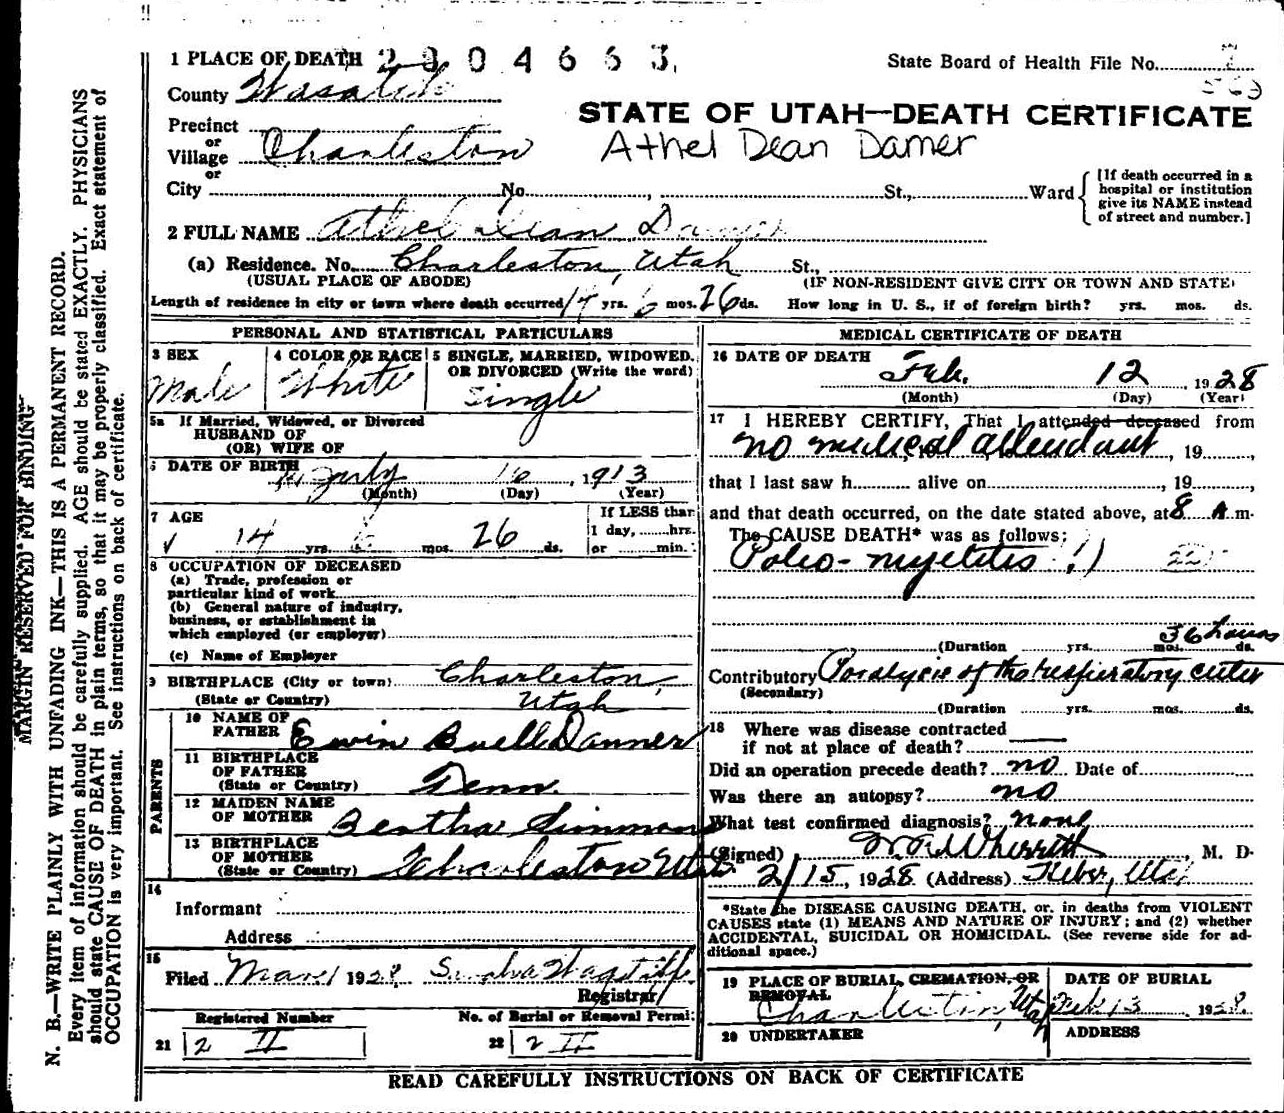 1 PLACE OF DEATH 2904663
State Board of Health File No. 7
563
County Wasatch
STATE OF UTAH—DEATH CERTIFICATE
Precinct
or
Village Charleston
Athel Dean Damer
or
City No. St., Ward
[If death occurred in a
hospital or institution
give its NAME instead
of street and number.]
2 FULL NAME Athel Dean
(a) Residence. No. Charleston, Utah St.,
(USUAL PLACE OF ABODE) (IF NON-RESIDENT GIVE CITY OR TOWN AND STATE)
Length of residence in city or town where death occurred 14 yrs. 6 mos. 26 ds. How long in U. S., if of foreign birth? yrs. mos. ds.
PERSONAL AND STATISTICAL PARTICULARS
3 SEX 4 COLOR OR RACE 5 SINGLE, MARRIED, WIDOWED,
OR DIVORCED (Write the word)
Male White Single
5a If Married, Widowed, or Divorced
HUSBAND OF
(OR) WIFE OF
6 DATE OF BIRTH July 16, 1913
(Month) (Day) (Year)
7 AGE If LESS than
1 day, hrs.
14 yrs. 6 mos. 26 ds. or min.
8 OCCUPATION OF DECEASED
(a) Trade, profession or
particular kind of work
(b) General nature of industry,
business, or establishment in
which employed (or employer)
(c) Name of Employer
9 BIRTHPLACE (City or town) Charleston,
(State or Country) Utah
PARENTS
10 NAME OF
FATHER Ewin Buell Danner
11 BIRTHPLACE
OF FATHER
(State or Country) Tenn.
12 MAIDEN NAME
OF MOTHER Bertha Simmons
13 BIRTHPLACE
OF MOTHER
(State or Country) Charleston Utah
14
Informant
Address
15
Filed Mar 1 1928 Wagstaff
Registrar
Registered Number No. of Burial or Removal Permit
21 2 II 22 2 II
MEDICAL CERTIFICATE OF DEATH
16 DATE OF DEATH
Feb. 12, 1928
(Month) (Day) (Year)
17 I HEREBY CERTIFY, That I attended deceased from
no medical attendant, 19
that I last saw h alive on, 19
and that death occurred, on the date stated above, at 8 A m.
The CAUSE DEATH* was as follows:
Poleo-myelitis
36 hours
(Duration yrs. mos. ds.
Contributory Paralysis of the respiratory center
(Secondary)
(Duration yrs. mos. ds.
18 Where was disease contracted
if not at place of death?
Did an operation precede death? no Date of
Was there an autopsy? no
What test confirmed diagnosis? none
(Signed) Wherritt, M. D.
2/15, 1928 (Address) Heber, Utah
*State the DISEASE CAUSING DEATH, or, in deaths from VIOLENT
CAUSES state (1) MEANS AND NATURE OF INJURY; and (2) whether
ACCIDENTAL, SUICIDAL OR HOMICIDAL. (See reverse side for ad-
ditional space.)
19 PLACE OF BURIAL, CREMATION, OR
REMOVAL
DATE OF BURIAL
Charleston, Utah Feb 13 1928.
20 UNDERTAKER ADDRESS
READ CAREFULLY INSTRUCTIONS ON BACK OF CERTIFICATE
MARGIN RESERVED FOR BINDING
N. B.—WRITE PLAINLY WITH UNFADING INK—THIS IS A PERMANENT RECORD.
Every item of information should be carefully supplied. AGE should be stated EXACTLY. PHYSICIANS
should state CAUSE OF DEATH in plain terms, so that it may be properly classified. Exact statement of
OCCUPATION is very important. See instructions on back of certificate.